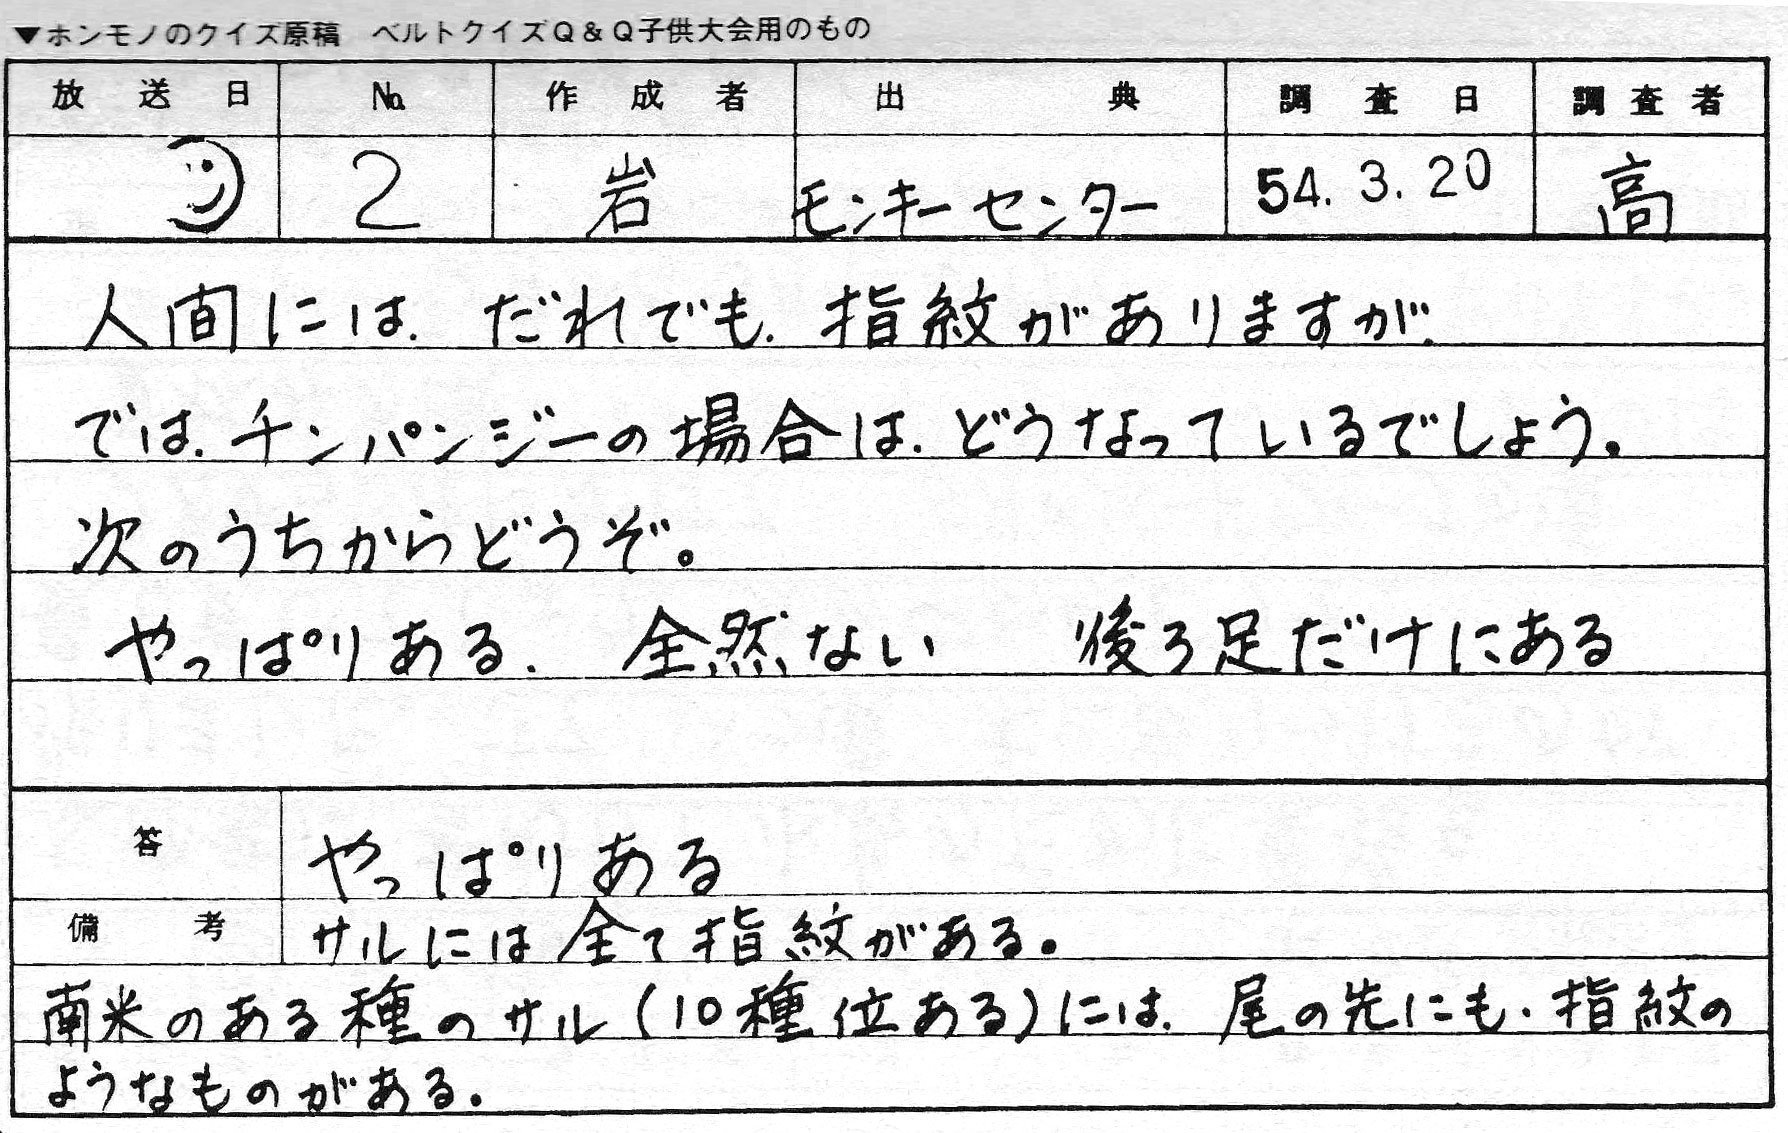 ▼ホンモノのクイズ原稿　ベルトクイズQ&Q子供大会用のもの
放送日　No.　作成者　出典　調査日　調査者
2　岩　モンキーセンター　54.3.20　高
人間には、だれでも、指紋がありますが、
では、チンパンジーの場合は、どうなっているでしょう。
次のうちからどうぞ。
やっぱりある、　全然ない　後ろ足だけにある
答　やっぱりある
備考　サルには全て指紋がある。
南米のある種のサル(10種位ある)には、尾の先にも、指紋の
ようなものがある。